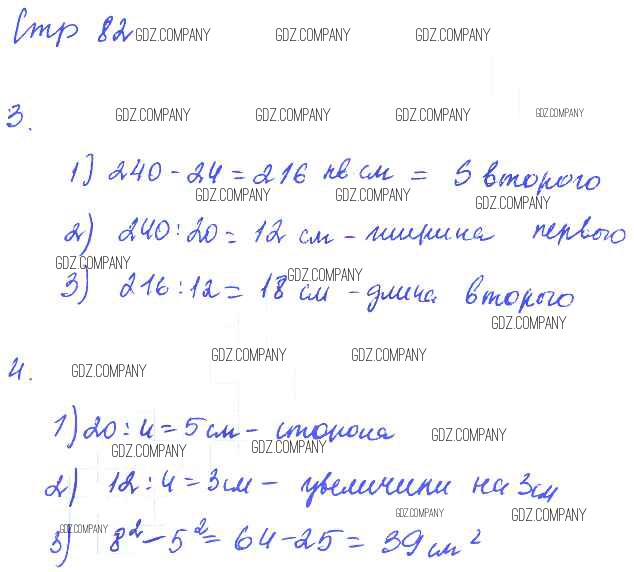 Стр 82 GDZ.COMPANY GDZ.COMPANY GDZ.COMPANY
3. GDZ.COMPANY GDZ.COMPANY GDZ.COMPANY GDZ.COMPANY
1) 240 - 24 = 216 кв см = S второго
GDZ.COMPANY GDZ.COMPANY GDZ.COMPANY
2) 240 : 20 = 12 см - ширина первого
GDZ.COMPANY GDZ.COMPANY
3) 216 : 12 = 18 см - длина второго
GDZ.COMPANY
GDZ.COMPANY GDZ.COMPANY
4. GDZ.COMPANY
1) 20 : 4 = 5 см - сторона GDZ.COMPANY
GDZ.COMPANY GDZ.COMPANY
2) 12 : 4 = 3 см - увеличили на 3 см
GDZ.COMPANY GDZ.COMPANY GDZ.COMPANY
3) 8² - 5² = 64 - 25 = 39 см²